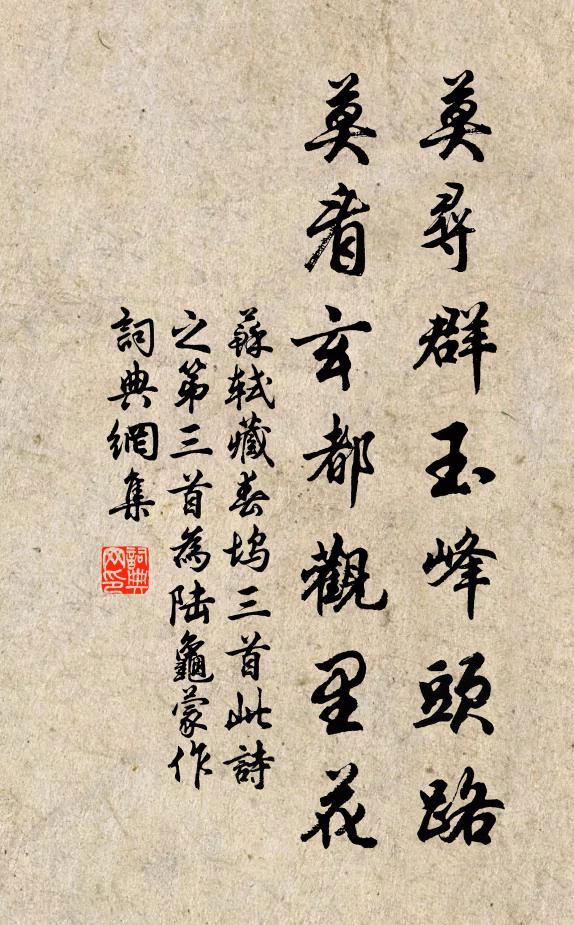 莫尋群玉峰頭路
莫看玄都觀里花
蘇軾藏春塢三首此詩
之第三首為陸龜蒙作
詞典網集
詞典网印